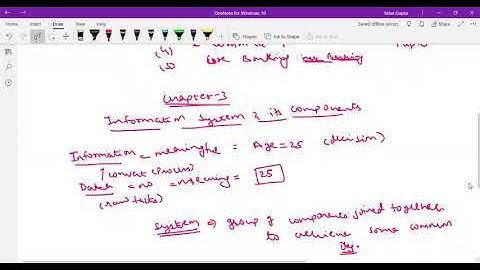 OneNote for Windows 10
File Home Insert Draw View Help
Ink to Shape
(4)
(5) Core Banking core Banking
Chapter-3
Information System & its components
Information = meaningful = Age = 25 (decision)
↑ convert (Process)
= no meaning = 25
(raw facts)
System ⇒ group of components joined together
to achieve some common